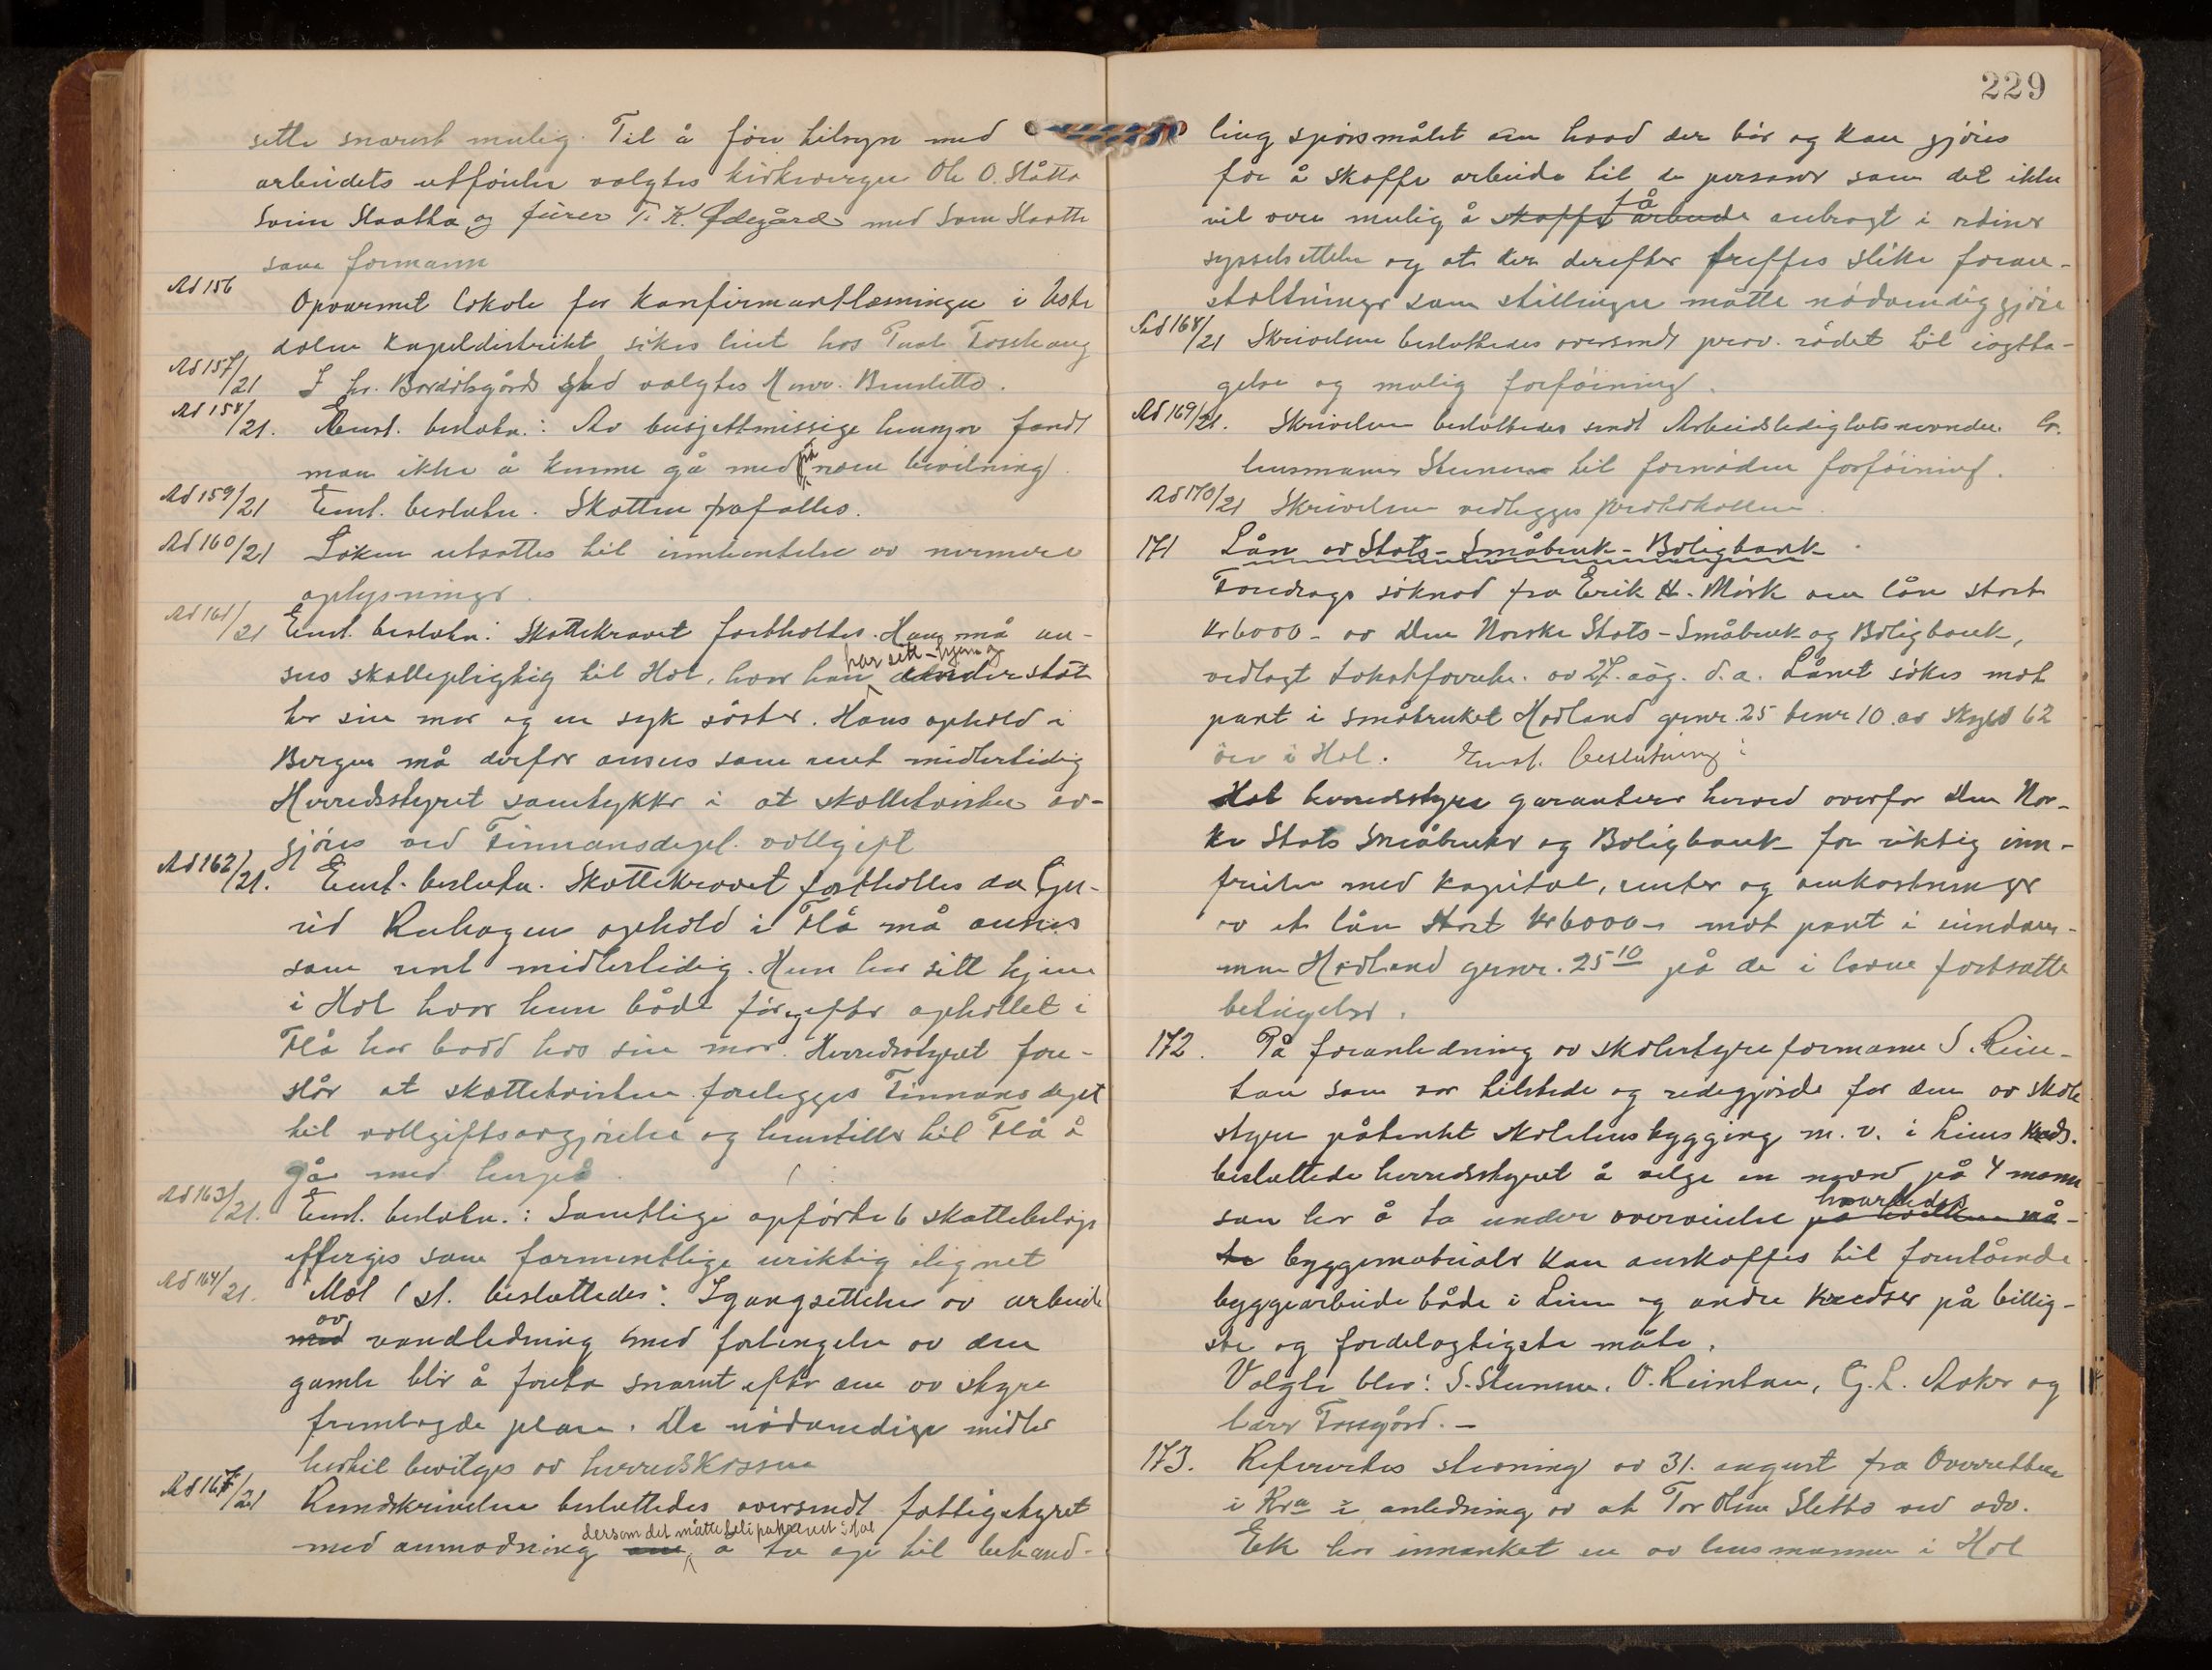 sette snarest mulig. Til å føre tilsyn med
arbeidets utførelse valgtes kirkeverge Ole O. Slåtto
Svein Slaatta og fürer T. K. Ødegård med Svein Slaatta
som formann
Ad 156
Opvarmet lokale for konfirmantlæsningen i Uste
dalen kapeldistrikt søkes leiet hos
Ad 157/21 I hr. sted valgtes
Ad 158/21. Enst. beslutn.: Av busjettmessige hensyn fandt
man ikke å kunne gå med på noen bevilning.
Ad 159/21 Enst. beslutn. Skatten frafalles.
Ad 160/21 Saken utsattes til innhentelse av nærmere
oplysninger.
Ad 161/21 Enst. beslutn: Skattekravet fastholdes. Han må an-
sees skattepligtig til Hol, hvor han har sitt hjem og understøt
ter sin mor og en syk søster. Hans ophold i
Bergen må derfor ansees som rent midlertidig
Herredsstyret samtykker i at skattetvisten av-
gjøres ved Finnansdepl. voldgift
Ad 162/21. Enst. beslutn. Skattekravet fastholdes da Gu-
rid ophold i Flå må ansees
som rent midlertidig. Hun har sitt hjem
i Hol hvor hun både før og efter opholdet i
Flå har bodd hos sin mor. Herredsstyret fore-
slår at skattetvisten forelegges Finnansdepet
til voldgiftsavgjørelse og henstiller til Flå å
gå med herpå.
Ad 163/21. Enst. beslutn.: Samtlige opførte 6 skattebeløp
effergis som formentlige uriktig ilignet
Ad 164/21. Mot 1 st. besluttedes: Igangsettelse av arbeide
med av vandledning med forlengelse av den
gamle blir å foreta snarest efter den av styre
fremlagde plan. De nødvendige midler
hertil bevilges av herredskassen
Ad 167/21 Rundskrivelsen besluttedes oversendt fattigstyret
med anmodning om dersom det måtte bli påkrævet i Hol å ta op til behand-
229
ling spørsmålet om hvad der bør og kan gjøres
for å skaffe arbeide til de personer som det ikke
vil være mulig å skaffe arbeide få anbragt i ordinær
sysselsettelse og at der derefter treffes slike foran-
staltninger som stillingen måtte nødvendiggjøre
Ad 168/21 Skrivelsen besluttedes oversendt prov. rådet til iagtta-
gelse og mulig forføining.
Ad 169/21. Skrivelsen besluttedes sendt Arbeidsledighetsnevnden
lensmann til fornøden forføining.
Ad 170/21 Skrivelsen vedlegges protokollen.
171 Lån av Stats-Småbruk-Boligbank
Foredrags søknad fra Erik H. Mørk om lån stort
kr 6000- av Den Norske Stats-Småbruk og Boligbank,
vedlagt av 27. aug. d.a. Lånet søkes mot
pant i småbruket Hodland grnr. 25 bnr 10 av skyld 62
øre i Hol. Enst. beslutning:
Hol herredsstyre garanterer herved overfor Den Nor-
ke Stats Småbruks og Boligbank for riktig inn-
frielse med kapital, renter og omkostninger
av et lån stort kr 6000-, mot pant i eiendom-
men Hodland grnr. 25 10 på de i loven fortsatte
betingelser.
172. På foranledning av skolestyreformann S. Rein-
ton som var tilstede og redegjorde for den av skole
styre påtenkt skolehusbygging m. v. i Liens kreds.
besluttede herredsstyret å velge en nevnd på 4 mann
som har å ta under overveielse på hvilken må- hvorledes
te byggematerialer kan anskaffes til forestående
byggearbeide både i Lien og andre kredser på billig-
ste og fordelagtigste måte.
Valgte blev: S. O. Reinton, G. L. Aaker og
Lars Fossgård. –
173. Refererte stevning av 31. august fra Overretten
i Kra i anledning av at Tor Sletto ved adv.
Ek har innanket en av lensmannen i Hol